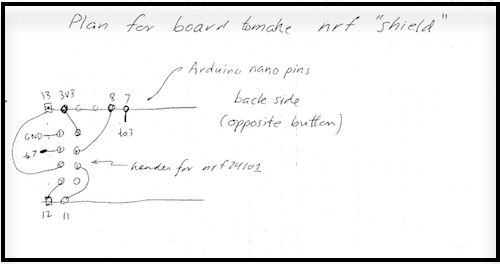 Plan for board tomake nrf "shield"
Arduino nano pins
13 3V3 8 7
back side
to3
(opposite button)
GND
header for nrf24l01
12 11